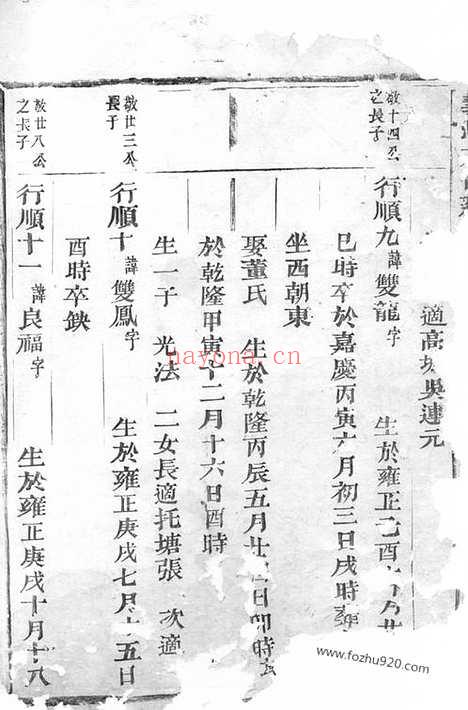 適高 吳連元
敬十四公
之長子
行順九 諱雙龍 字 生於雍正己酉 月廿
巳時卒於嘉慶丙寅六月初三日戌時
坐西朝東
娶董氏 生於乾隆丙辰五月廿 日卯時
於乾隆甲寅十二月十六日酉時
生一子 光法 二女長適托塘張 次適
敬廿三公
長子
行順十 諱雙鳳 字 生於雍正庚戌七月 五日
酉時卒缺
敬廿八公
之長子
行順十一 諱良福 字 生於雍正庚戌十月十八
hayona.cn
www.fozhu920.com